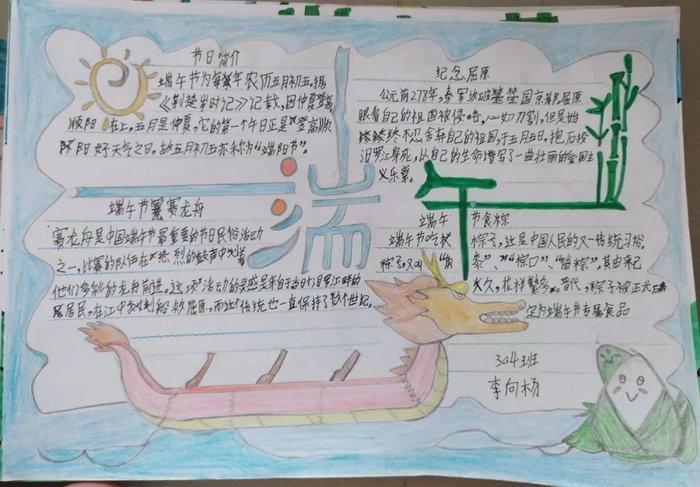 节日简介
端午节为每年农历五月初五。据
《荆楚岁时记》记载,因仲夏登高
顺阳在上,五月是仲夏,它的第一个午日正是登高顺
阳好天气之日。故五月初五亦称为“端阳节”。
纪念屈原
公元前278年,秦军攻破楚国京都。屈原
眼看自己的祖国被侵略,心如刀割,但是始
终不忍舍弃自己的祖国,于五月五日,抱石投
汨罗江身死,以自己的生命谱写了一曲壮丽的爱国主
义乐章。
端午
端午节赛龙舟
赛龙舟是中国端午节最重要的节日民俗活动
之一,比赛的队伍在热烈的鼓声中
他们多彩的龙舟前进。这项活动的灵感是来自于当时汨罗江畔的
居民,在江中划船救屈原。而这个传统也一直保持了数个世纪。
端午节食粽
端午节吃粽子,这是中国人民的又一传统习俗。
粽子,又叫“角黍”、“筒粽”。其由来已
久,花样繁多。晋代,粽子被正式
定为端午节专属食品
304班
李向杨